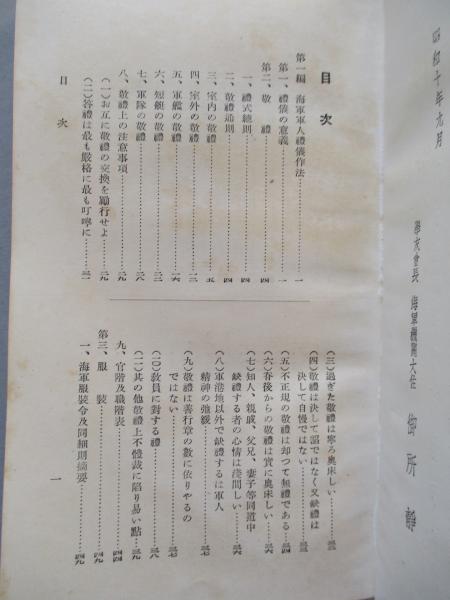 昭和十年九月
學友會長 海軍機關大佐 御所靜
目次
第一編 海軍軍人禮儀作法……一
第一、禮儀の意義……一
第二、敬禮……四
一、禮式總則……四
二、敬禮通則……四
三、室内の敬禮……八
四、室外の敬禮……一二
五、軍艦の敬禮……一六
六、短艇の敬禮……二四
七、軍隊の敬禮……二八
八、敬禮上の注意事項……二九
(一)お互に敬禮の交換を勵行せよ……二九
(二)答禮は最も嚴格に最も叮嚀に……三一
目次
(三)過ぎた敬禮は寧ろ奥床しい……三三
(四)敬禮は決して謟ではなく又缺禮は
決して自慢ではない……三三
(五)不正規の敬禮は却つて無禮である……三四
(六)脊後からの敬禮は實に奥床しい……三六
(七)知人、親戚、父兄、妻子等同道中
缺禮する者の心情は淺間しい……三六
(八)軍港地以外で缺禮するは軍人
精神の弛緩……三七
(九)敬禮は善行章の數に依りやるの
ではない……三七
(一〇)敎員に對する禮……三八
(一一)其の他敬禮上不體裁に陷り易い點……三九
九、官階及職階表……四四
第三、服裝……四九
一、海軍服裝令及同細則摘要……四九
一